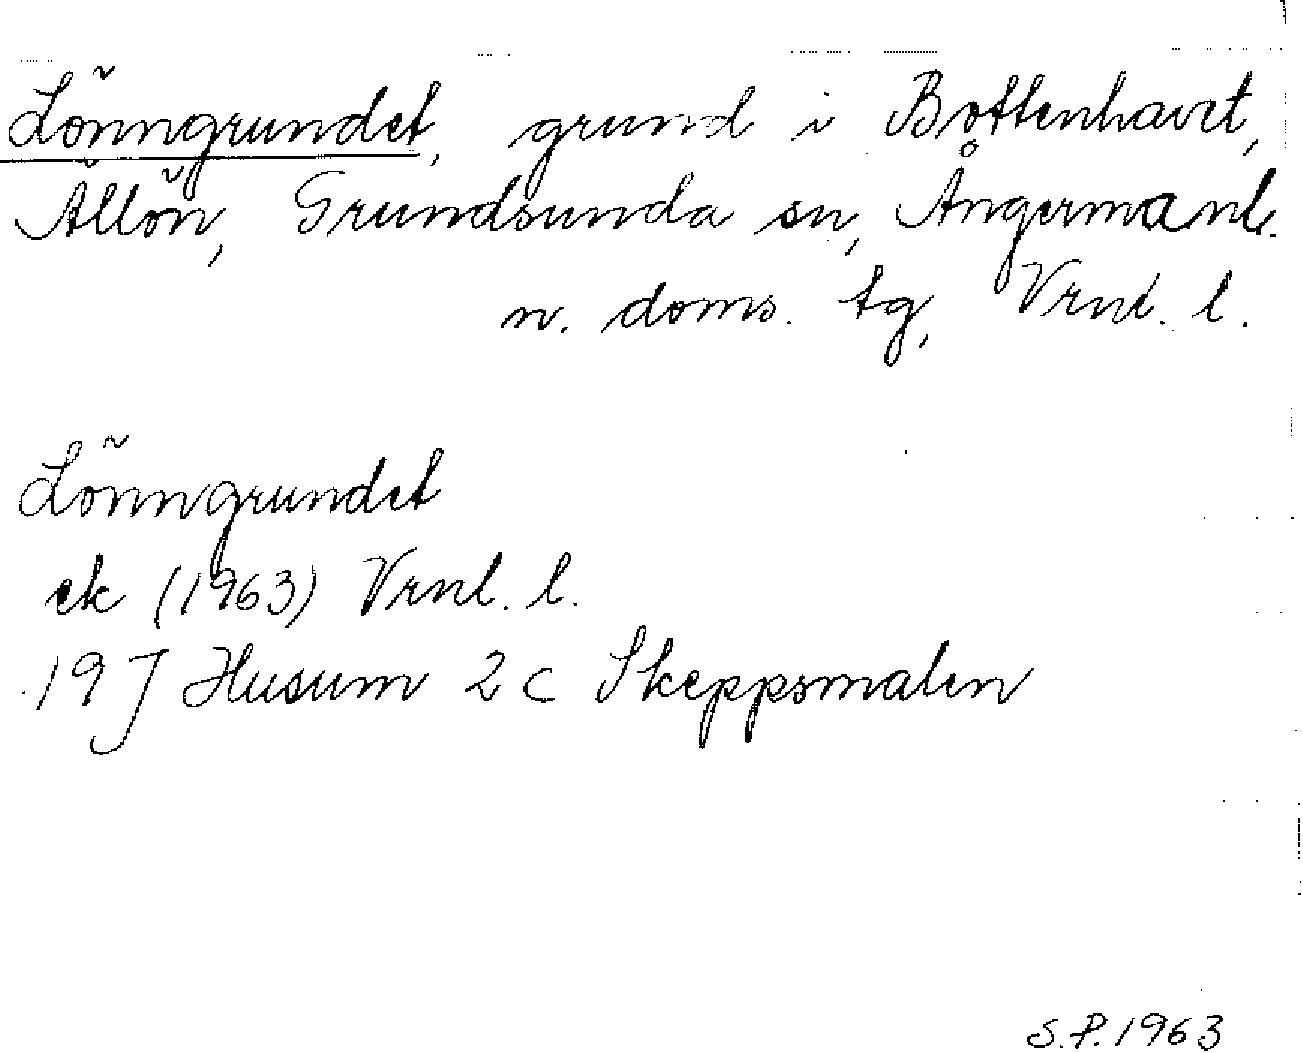 Lönngrundet, grund i Bottenhavet,
Ällön, Grundsunda sn, Ångermanl.
n. doms. tg, Vrnl. l.
Lönngrundet
ek (1963) Vrnl. l.
19 J Husum 2 c Skeppsmalen
S.P. 1963